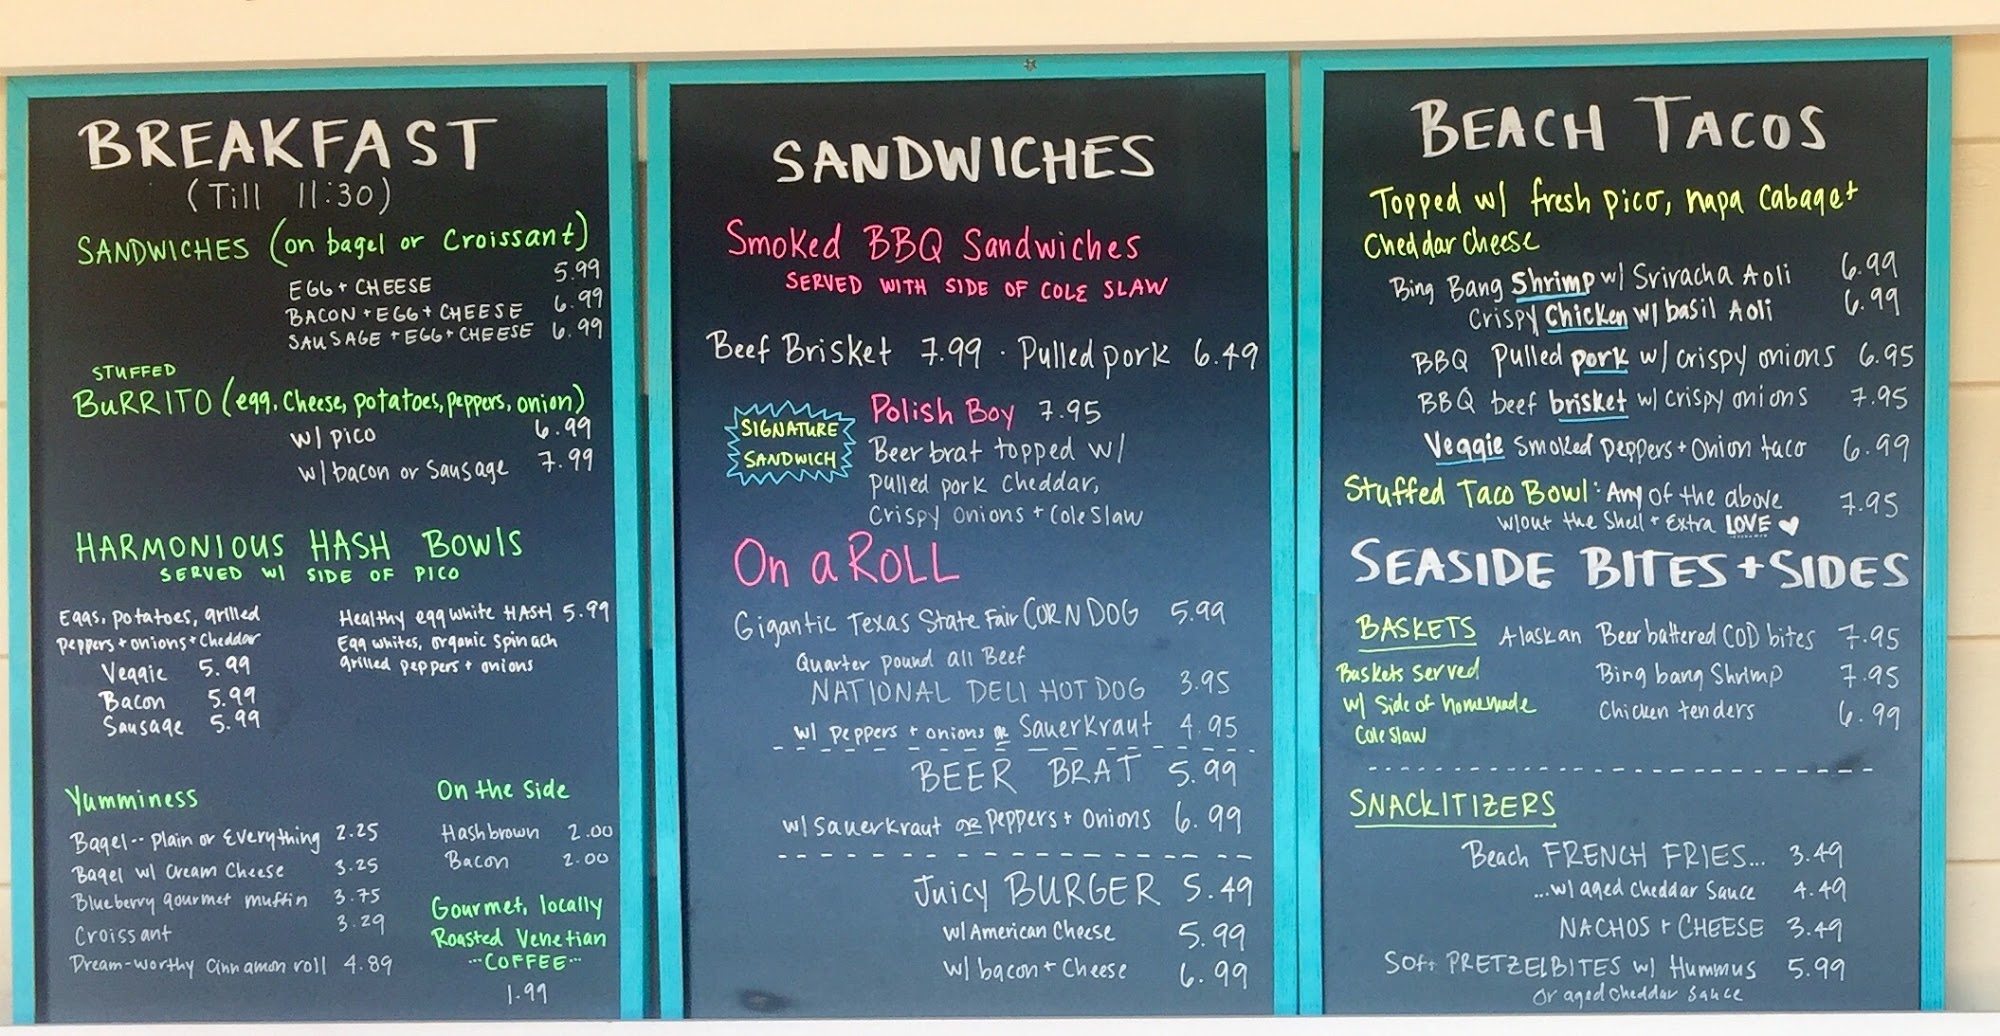 BREAKFAST
(Till 11:30)
SANDWICHES (on bagel or Croissant)
EGG + CHEESE 5.99
BACON + EGG + CHEESE 6.99
SAUSAGE + EGG + CHEESE 6.99
STUFFED
BURRITO (egg, Cheese, potatoes, peppers, onion)
w/ pico 6.99
w/ bacon or Sausage 7.99
HARMONIOUS HASH BOWlS
SERVED w/ SIDE OF PICO
Eggs, potatoes, grilled
peppers + onions + Cheddar
Veggie 5.99
Bacon 5.99
Sausage 5.99
Healthy egg white HASH 5.99
Egg whites, organic spinach
grilled peppers + onions
Yumminess
Bagel -- plain or Everything 2.25
Bagel w/ Cream Cheese 3.25
Blueberry gourmet muffin 3.75
Croissant 3.29
Dream-worthy Cinnamon roll 4.89
On the Side
Hashbrown 2.00
Bacon 2.00
Gourmet, locally
Roasted Venetian
...COFFEE...
1.99
SANDWICHES
Smoked BBQ Sandwiches
SERVED WITH SIDE OF COLE SLAW
Beef Brisket 7.99 · Pulled pork 6.49
SIGNATURE
SANDWICH
Polish Boy 7.95
Beer brat topped w/
pulled pork Cheddar,
Crispy Onions + Cole Slaw
On a ROLL
Gigantic Texas State Fair CORN DOG 5.99
Quarter pound all Beef
NATIONAL DELI HOT DOG 3.95
w/ peppers + onions or Sauerkraut 4.95
BEER BRAT 5.99
w/ sauerkraut or peppers + Onions 6.99
Juicy BURGER 5.49
w/ American Cheese 5.99
w/ bacon + Cheese 6.99
BEACH TACOS
Topped w/ fresh pico, napa Cabage +
Cheddar Cheese
Bing Bang Shrimp w/ Sriracha Aoli 6.99
Crispy Chicken w/ basil Aoli 6.99
BBQ pulled pork w/ crispy onions 6.95
BBQ beef brisket w/ crispy onions 7.95
Veggie Smoked peppers + Onion taco 6.99
Stuffed Taco Bowl: Any of the above 7.95
w/out the Shell + Extra LOVE ♥
SEASIDE BITES + SIDES
BASKETS
Baskets served
w/ Side of homemade
Cole Slaw
Alaskan Beer battered COD bites 7.95
Bing bang Shrimp 7.95
Chicken tenders 6.99
SNACKITIZERS
Beach FRENCH FRIES... 3.49
...w/ aged Cheddar Sauce 4.49
NACHOS + CHEESE 3.49
Soft PRETZEL BITES w/ Hummus 5.99
or aged Cheddar Sauce